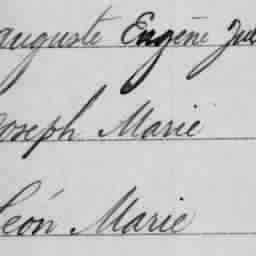 Auguste Eugène Jul
Joseph Marie
Léon Marie